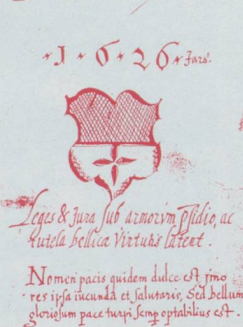 1626 Jars.
Leges & Jura sub armorum psidio, ac
tutela bellicæ Virtutis latent.
Nomen pacis quidem dulce est, imo
res ipsa iucunda et salutaris, Sed bellum
gloriosum pace turpi semp optabilius est.